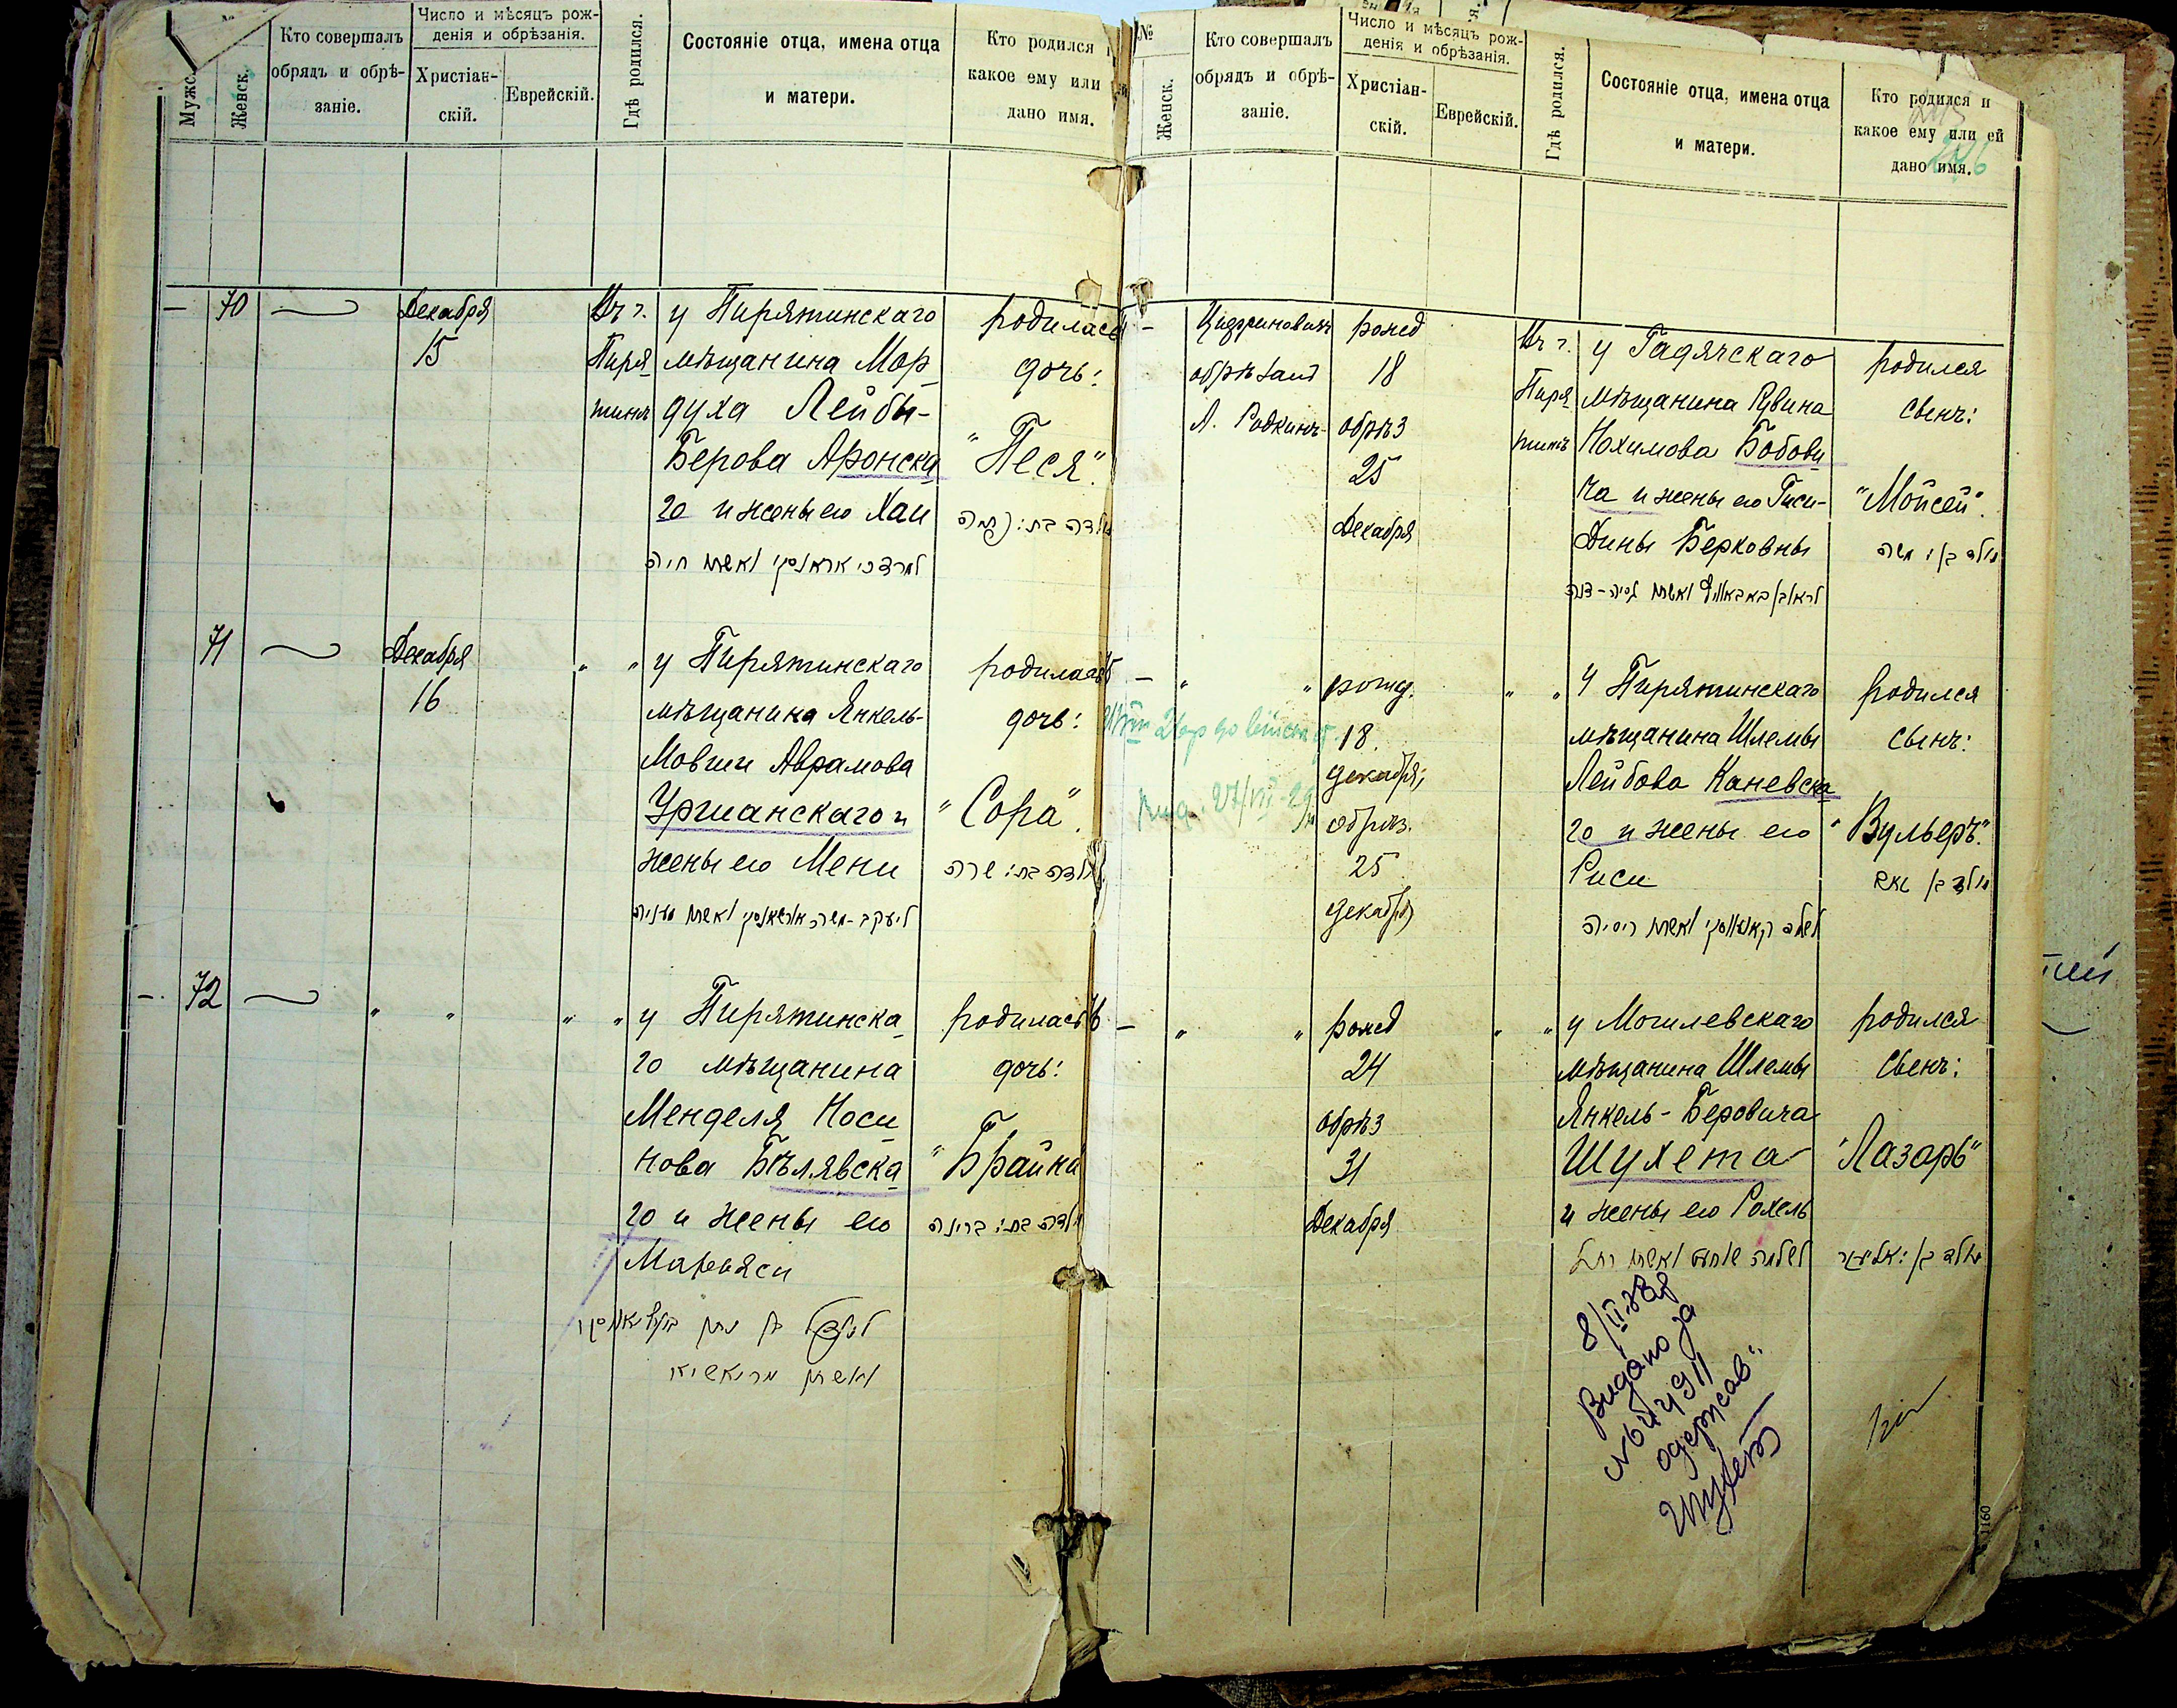 Мужск.
Женск.
Кто совершалъ
обрядъ и обрѣ-
заніе.
Число и мѣсяцъ рож-
денія и обрѣзанія.
Христіан-
скій.
Еврейскій.
Гдѣ родился.
Состояніе отца, имена отца
и матери.
Кто родился и
какое ему или
дано имя.
— 70
Декабря
15
Въ г.
Пиря-
тинѣ
у Пирятинскаго
мѣщанина Мор-
духа Лейбы-
Берова Аронска-
го и жены его Хаи
למרדכי אראנסקי ואשתו חיה
родилась
дочь:
"Песя".
נולדה בת: פסיה
71
Декабря
16
" "
у Пирятинскаго
мѣщанина Янкель-
Мовши Аврамова
Уршанскаго и
жены его Мени
родилась
дочь:
"Сора".
נולדה בת: שרה
—. 72
" " " "
у Пирятинска-
го мѣщанина
Менделя Носи-
нова Бѣлявска-
го и жены его
Марьяси
родилась
дочь:
"Брайна
נולדה בת: בריינה
№
Женск.
Кто совершалъ
обрядъ и обрѣ-
заніе.
Число и мѣсяцъ рож-
денія и обрѣзанія.
Христіан-
скій.
Еврейскій.
Гдѣ родился.
Состояніе отца, имена отца
и матери.
Кто родился и
какое ему или ей
дано имя.
246
—
обрѣзалъ
А. Родкинъ
рожд
18
обрѣз
25
Декабря
Въ г.
Пиря-
тинѣ
у Гадячскаго
мѣщанина Рувина
Нохимова Бобови-
ча и жены его Гиси-
Дины Берковны
родился
сынъ:
"Мойсей".
נולד בן: משה
— " "
рожд.
18.
декабря;
обрѣз.
25
декабря
" "
у Пирятинскаго
мѣщанина Шлемы
Лейбова Каневска-
го и жены его
Риси
родился
сынъ:
"Вульеръ".
— " "
рожд
24
обрѣз
31
Декабря
" "
у Могилевскаго
мѣщанина Шлемы
Янкель-Беровича
Шухета
и жены его Рохель
לשלמה שוחט ואשתו רחל
родился
сынъ:
"Лазарь"
נולד בן: אליעזר
Видано за
одержав".
Шухет
1160